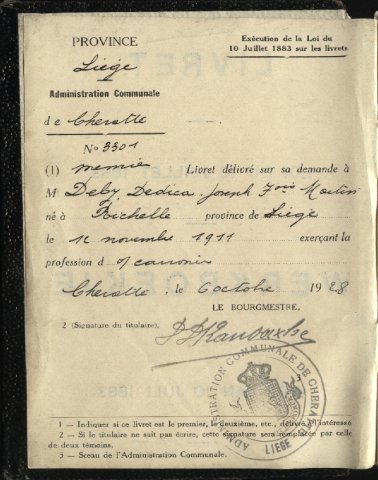 PROVINCE
Liége
Administration Communale
de Cheratte
Exécution de la Loi du
10 Juillet 1883 sur les livrets
No 3301
(1) Livret délivré sur sa demande à
M Deby, Joseph Martin
né à province de Liége
le 12 novembre 1911 exerçant la
profession d
Cheratte, le 6 octobre 1928
LE BOURGMESTRE,
2 (Signature du titulaire),
ADMINISTRATION COMMUNALE DE CHERATTE
LIEGE
1 — Indiquer si ce livret est le premier, le deuxième, etc., délivré à l'intéressé
2 — Si le titulaire ne sait pas écrire, cette signature sera remplacée par celle
de deux témoins.
3 — Sceau de l'Administration Communale.